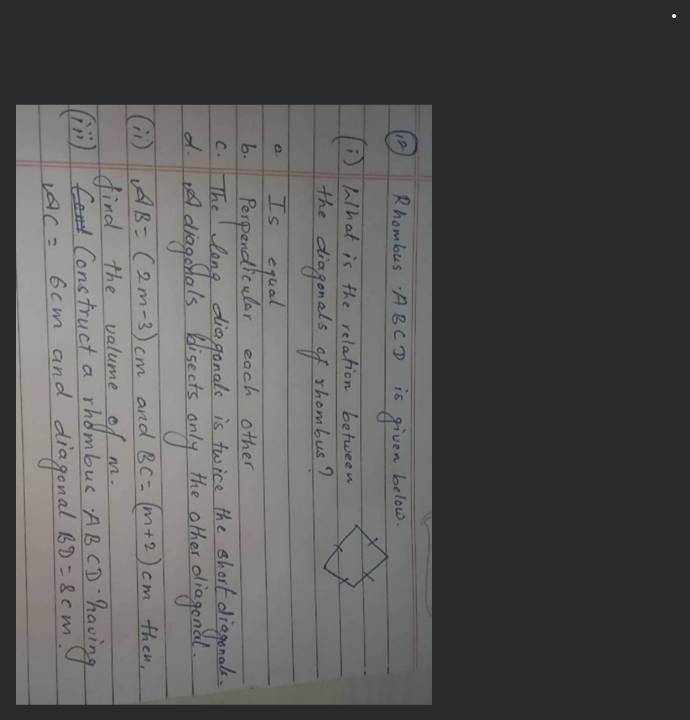 12 Rhombus ABCD is given below.
(i) What is the relation between
the diagonals of rhombus?
a. Is equal
b. Perpendicular each other
c. The long diagonals is twice the short diagonals.
d. A diagonals bisects only the other diagonal.
(ii) AB = (2m-3)cm and BC = (m+2)cm then,
find the valume of m.
(iii) Construct a rhombus ABCD having
AC = 6cm and diagonal BD = 8cm.